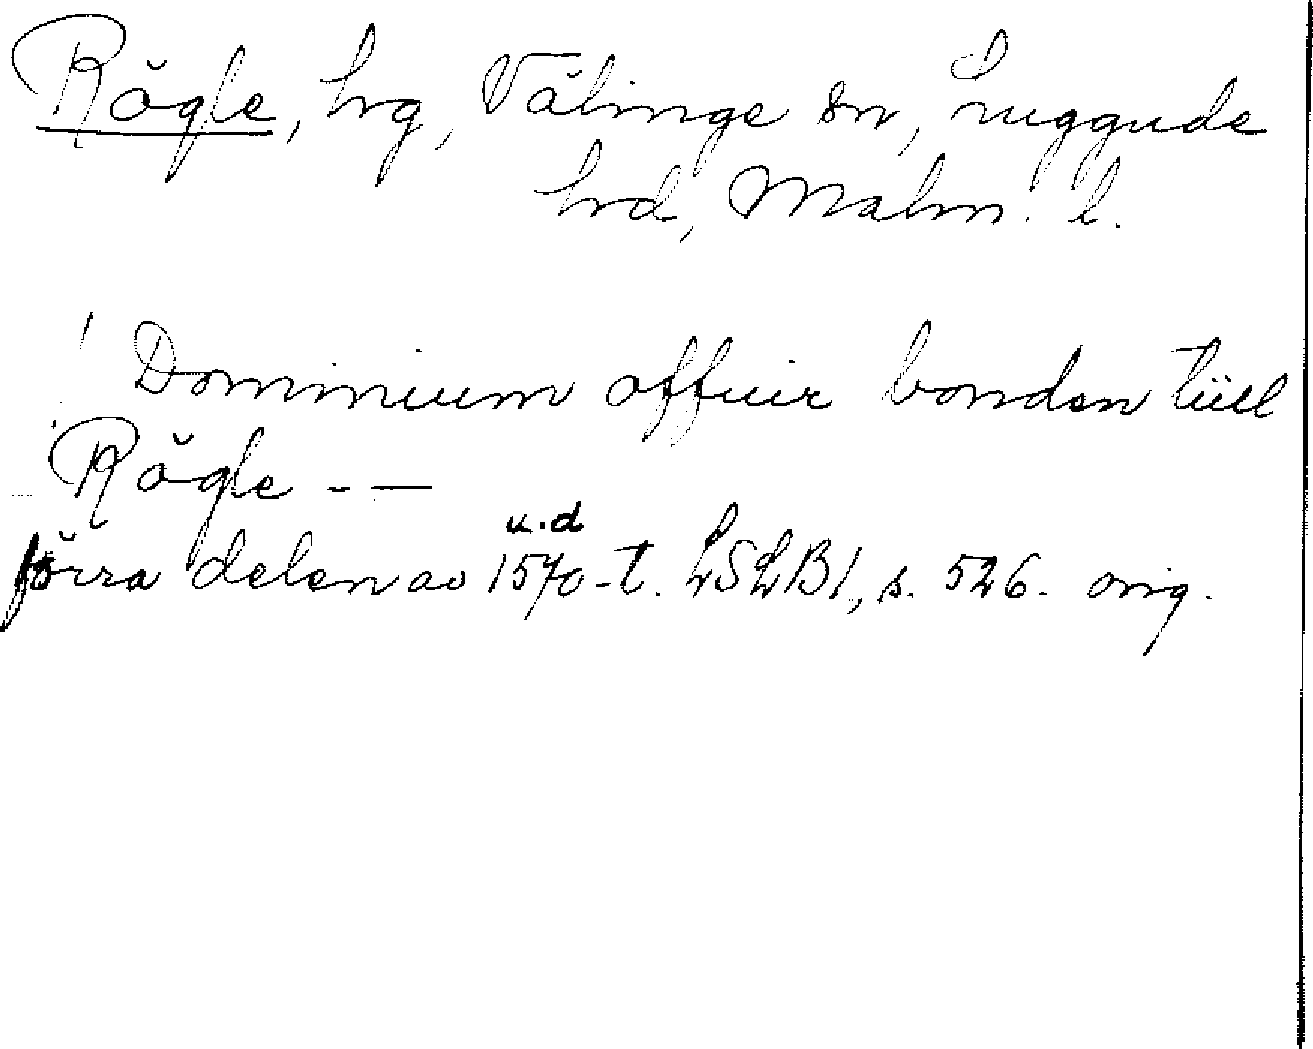 Rögle, hrg, Välinge sn, Luggude
hrd, Malm. l.
Dominium offuir bonden tiill
Rögle - —
u.d
förra delen av 1570-t. LSLB1, s. 526. orig.